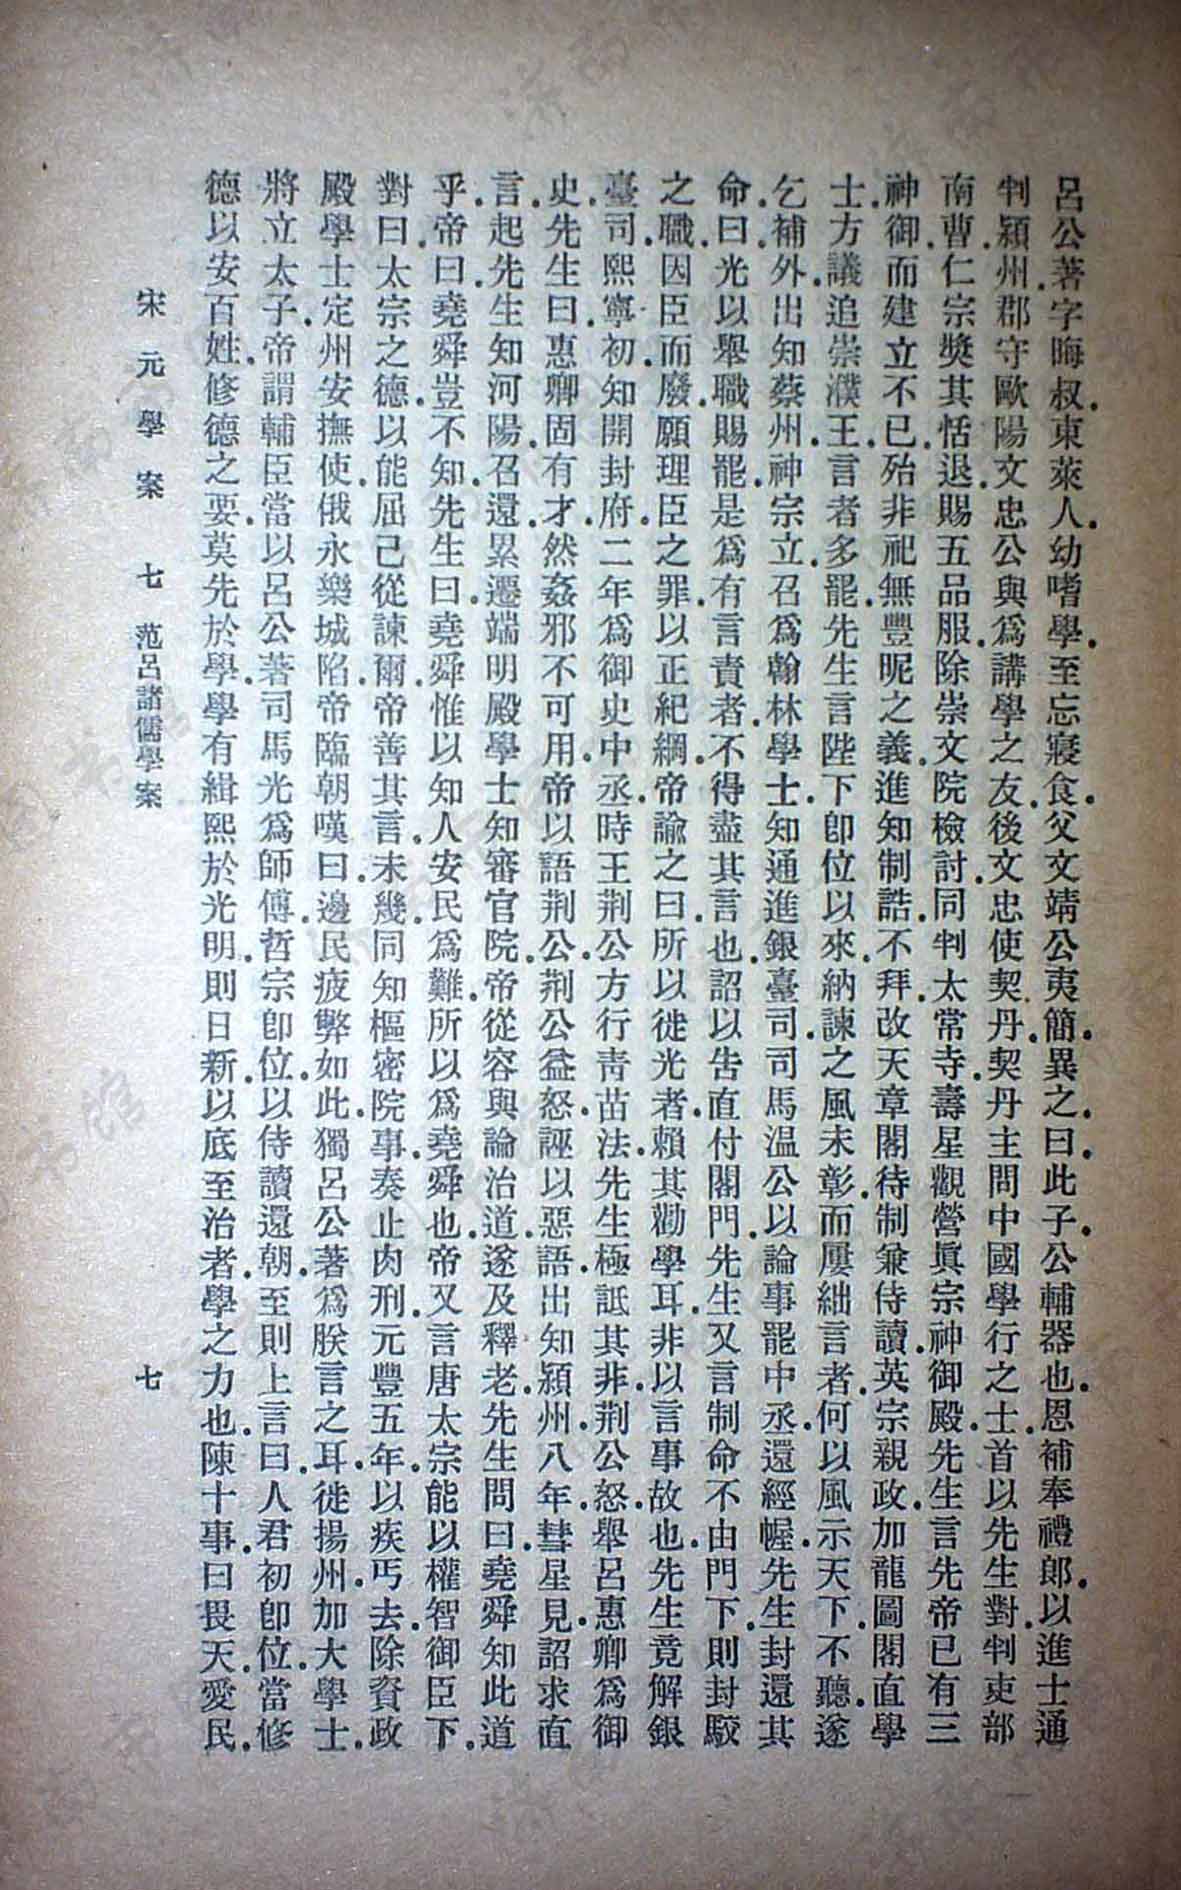 呂公著字晦叔.東萊人.幼嗜學.至忘寢食.父文靖公夷簡.異之.曰.此子.公輔器也.恩補奉禮郎.以進士通
判.潁州.郡守歐陽文忠公與爲講學之友.後文忠使契丹.契丹主問中國學行之士.首以先生對.判吏部
南曹.仁宗獎其恬退.賜五品服.除崇文院檢討.同判太常寺.壽星觀營眞宗神御殿.先生言先帝已有三
神御.而建立不已.殆非祀無豐昵之義.進知制誥.不拜.改天章閣待制兼侍讀.英宗親政.加龍圖閣直學
士.方議追崇濮王.言者多罷.先生言陛下卽位以來.納諫之風未彰.而屢絀言者.何以風示天下.不聽.遂
乞補外.出知蔡州.神宗立.召爲翰林學士.知通進銀臺司.司馬溫公以論事罷中丞.還經幄.先生封還其
命.曰.光以舉職賜罷.是爲有言責者.不得盡其言也.詔以告直付閤門.先生又言制命不由門下.則封駮
之職.因臣而廢.願理臣之罪.以正紀綱.帝諭之曰.所以徙光者.賴其勸學耳.非以言事故也.先生竟解銀
臺司.熙寧初.知開封府.二年爲御史中丞.時王荆公方行靑苗法.先生極詆其非.荆公怒.舉呂惠卿爲御
史.先生曰.惠卿固有才.然姦邪不可用.帝以語荆公.荆公益怒.誣以惡語.出知潁州.八年.彗星見.詔求直
言.起先生知河陽.召還.累遷端明殿學士知審官院.帝從容與論治道.遂及釋老.先生問曰.堯舜知此道
乎.帝曰.堯舜豈不知.先生曰.堯舜惟以知人安民爲難.所以爲堯舜也.帝又言唐太宗能以權智御臣下.
對曰.太宗之德.以能屈己從諫爾.帝善其言.未幾.同知樞密院事.奏止肉刑.元豐五年.以疾丐去.除資政
殿學士定州安撫使.俄永樂城陷.帝臨朝嘆曰.邊民疲弊如此.獨呂公著爲朕言之耳.徙揚州.加大學士.
將立太子.帝謂輔臣.當以呂公著司馬光爲師傅.哲宗卽位.以侍讀還朝.至則上言曰.人君初卽位.當修
德以安百姓.修德之要.莫先於學.學有緝熙於光明.則日新.以底至治者.學之力也.陳十事.曰畏天.愛民.
宋元學案 七 范呂諸儒學案 七